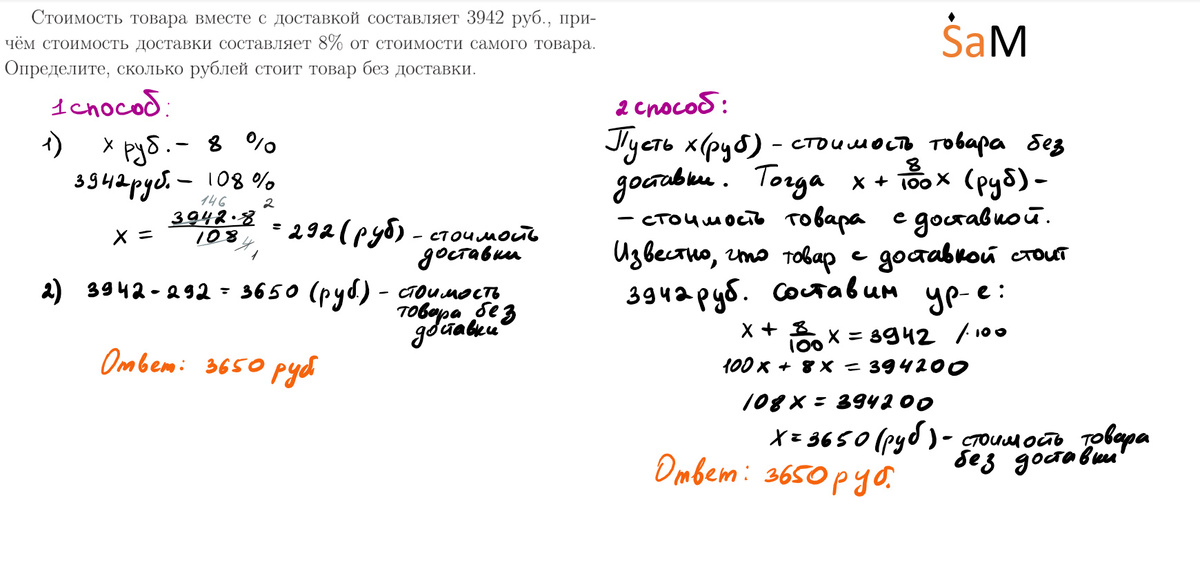 Стоимость товара вместе с доставкой составляет 3942 руб., при-
чём стоимость доставки составляет 8% от стоимости самого товара.
Определите, сколько рублей стоит товар без доставки.
SaM
1 способ:
1) x руб. - 8 %
3942 руб. - 108 %
146 2
x = 3942·8 / 108 = 292 (руб) - стоимость
4 1
доставки
2) 3942 - 292 = 3650 (руб.) - стоимость
товара без
доставки
Ответ: 3650 руб
2 способ:
Пусть x (руб) - стоимость товара без
доставки. Тогда x + 8/100 x (руб) -
- стоимость товара с доставкой.
Известно, что товар с доставкой стоит
3942 руб. Составим ур-е:
x + 8/100 x = 3942 /·100
100x + 8x = 394200
108x = 394200
x = 3650 (руб) - стоимость товара
без доставки
Ответ: 3650 руб.